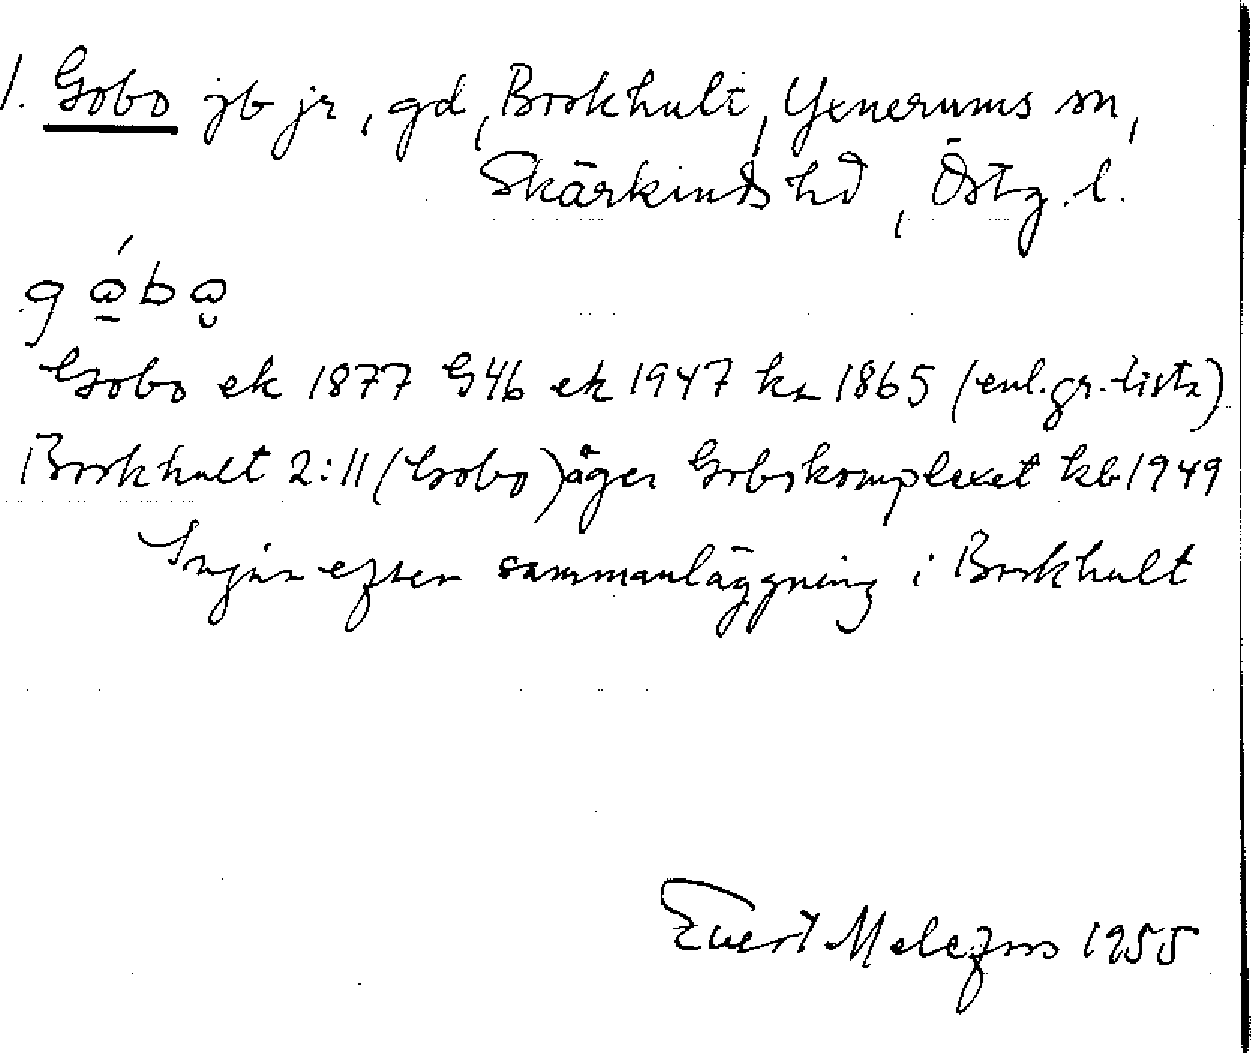 1. Gobo jb jr, gd, Brokhult, Yxnerums sn,
Skärkinds hd, Östg. l.
Gobo ek 1877 G4b ek 1947 ka 1865 (enl. gr.-lista)
Brokhult 2:11 (Gobo) äger Gobokomplexet kb 1949
efter sammanläggning i Brokhult
Evert Melefors 1955